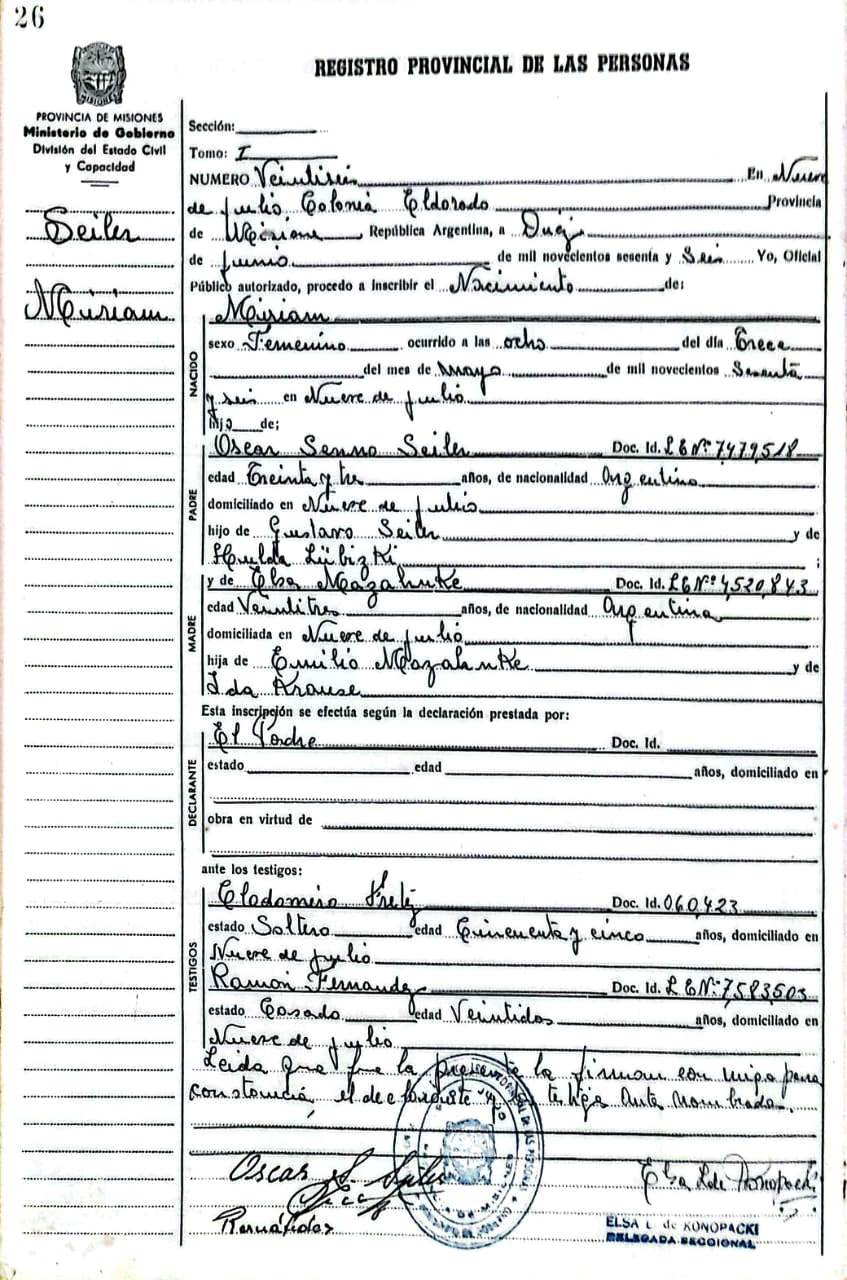 26
REGISTRO PROVINCIAL DE LAS PERSONAS
PROVINCIA DE MISIONES
Ministerio de Gobierno
División del Estado Civil
y Capacidad
Seiler
Miriam
Sección:
Tomo: I
NUMERO Veintiseis En Nueve
de julio Colonia Eldorado Provincia
de Misiones República Argentina, a Diez
de junio de mil novecientos sesenta y Seis Yo, Oficial
Público autorizado, procedo a inscribir el Nacimiento de:
NACIDO
Miriam
sexo Femenino ocurrido a las ocho del día Trece
del mes de mayo de mil novecientos Sesenta
y seis en Nueve de julio
hija de;
PADRE
Oscar Senno Seiler Doc. Id. L E Nº 7,479,518
edad Treinta y tres años, de nacionalidad Argentino
domiciliado en Nueve de julio
hijo de Gustavo Seiler y de
Hulda Lübizki ;
MADRE
y de Elsa Mazahnke Doc. Id. L E Nº 4,520,843
edad Veintitres años, de nacionalidad Argentina
domiciliada en Nueve de julio
hija de Emilio Mazahnke y de
Ida Krause
Esta inscripción se efectúa según la declaración prestada por:
DECLARANTE
El Padre Doc. Id.
estado edad años, domiciliado en
obra en virtud de
ante los testigos:
TESTIGOS
Clodomiro Doc. Id. 060,423
estado Soltero edad Cincuenta y cinco años, domiciliado en
Nueve de julio
Ramón Fernandez Doc. Id. L E Nº 7,583,503
estado Casado edad Veintidos años, domiciliado en
Nueve de julio
Leida que fue la presente la firman con migo para
constancia, el declarante y los testigos ante nombrados.
Oscar S. Seiler
Elsa L de Konopacki
ELSA L. de KONOPACKI
DELEGADA SECCIONAL